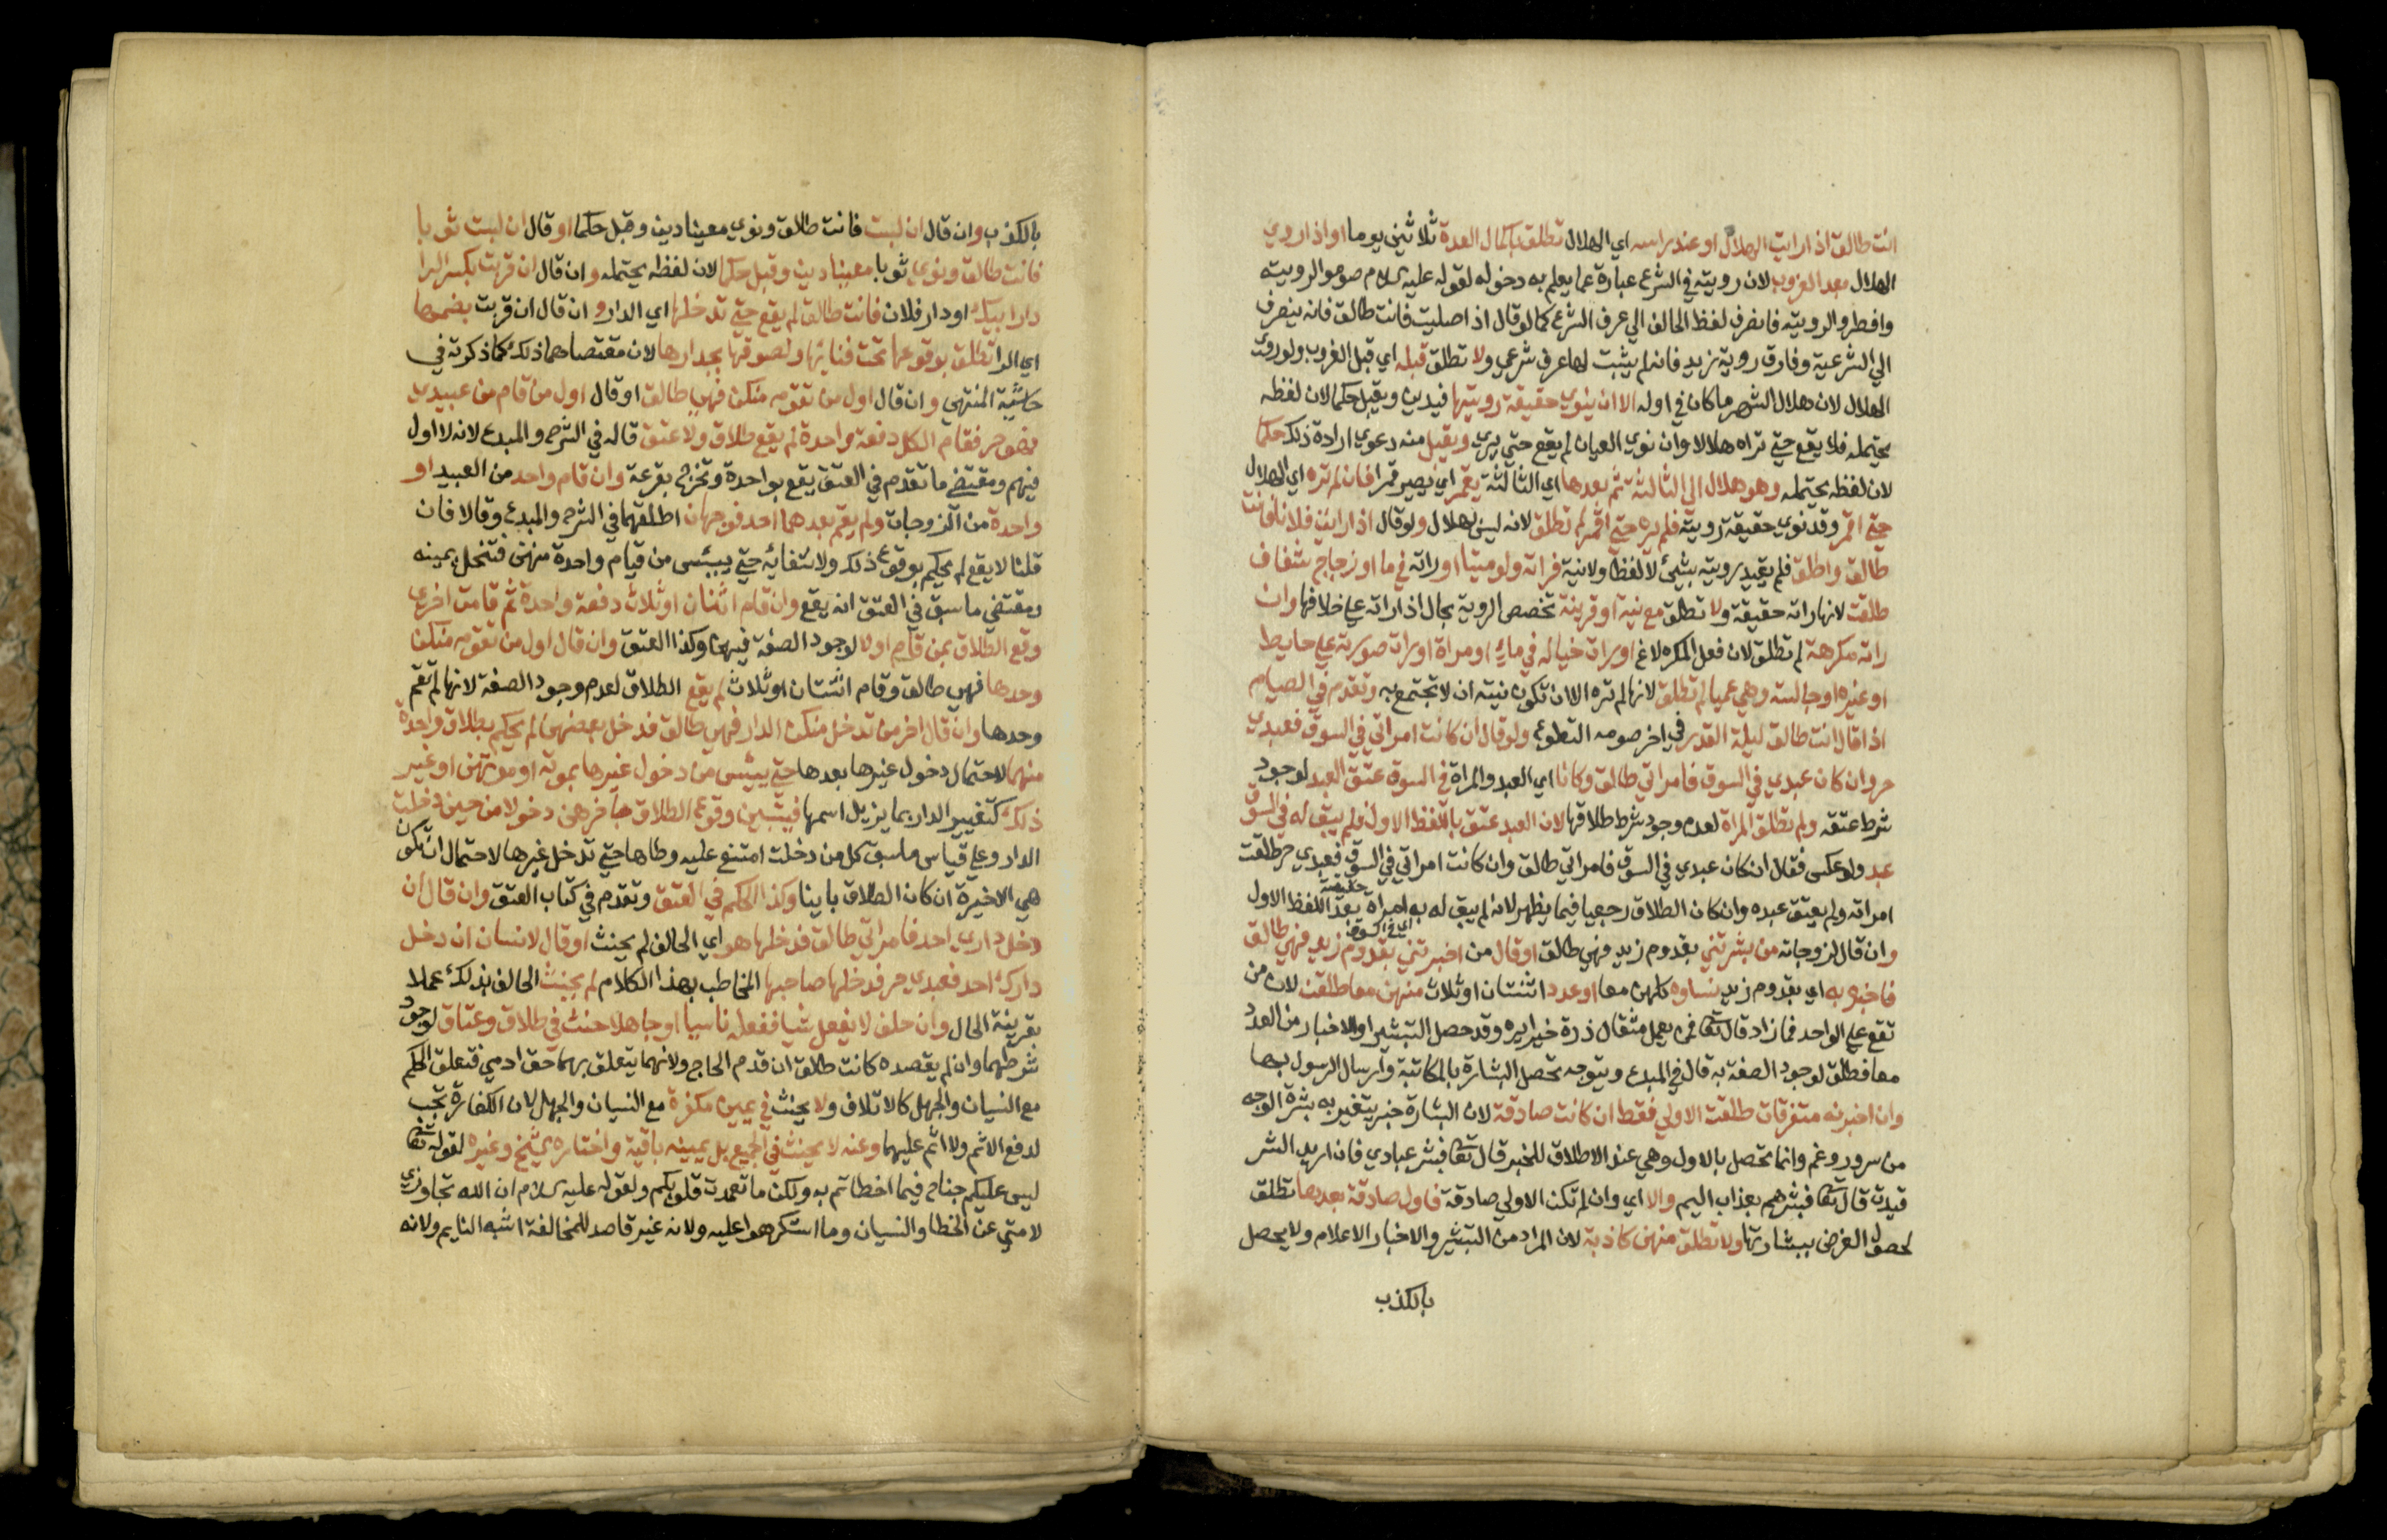 انت طالق اذا رايت الهلال او عند راسه اي الهلال تطلق باكمال العدة ثلاثين يوما او اذا روي
الهلال بعد الغروب لان رويته في الشرع عبارة عما يعلم به دخوله لقوله عليه السلام صوموا لرويته
وافطروا لرويته فانصرف لفظ الحالف الي عرف الشرع كما لو قال اذا صليت فانت طالق فانه ينصرف
الي الشرعية وفارق روية زيد فانه لم يثبت لها عرف شرعي ولا تطلق قبله اي قبل الغروب ولو روي
الهلال لان هلال الشهر ما كان في اوله الا ان ينوي حقيقة رويتها فيدين ويقبل حكما لان لفظه
يحتمله فلا يقع حتي تراه هلالا وان نوي العيان لم يقع حتي يري ويقبل منه دعوي ارادة ذلك حكما
لان لفظه يحتمله وهو هلال الي الثالثة ثم بعدها اي الثالثة يقمر اي يصير قمرا فان لم تره اي الهلال
حتي اقمر وقد نوي حقيقة رويته فلم يره حتي اقمر لم تطلق لانه ليس بهلال ولو قال اذا رايت فلانا فانت
طالق واطلق فلم يقيد رويته بشيئ لا لفظا ولا نية فراته ولو ميتا او راته في ما او زجاج شفاف
طلقت لانها راته حقيقة ولا تطلق مع نية او قرينة تخصص الروية بحال اذا راته علي خلافها وان
راته مكرهة لم تطلق لان فعل المكره لاغ او رات خياله في ماء او مراة او رات صورته علي حايط
او غيره او جالسته وهي عميا لم تطلق لانها لم تره الا ان تكون نيته ان لا تجتمع به وتقدم في الصيام
اذا قال انت طالق ليلة القدر في اخر صومه التطوع ولو قال ان كانت امراتي في السوق فعبدي
حر وان كان عبدي في السوق فامراتي طالق وكانا اي العبد والمراة في السوق عتق العبد لوجود
شرط عتقه ولم تطلق المراة لعدم وجود شرط طلاقها لان العبد عتق باللفظ الاول فلم يبق له في السوق
عبد ولو عكس فقال ان كان عبدي في السوق فامراتي طالق وان كانت امراتي في السوق فعبدي حر طلقت
امراته ولم يعتق عبده وان كان الطلاق رجعيا فيما يظهر لانه لم يبق له به امراة حقيقة بعد اللفظ الاول
اي في السوق
وان قال لزوجاته من بشرتني بقدوم زيد فهي طالق او قال من اخبرتني بقدوم زيد فهي طالق
فاخبره به اي بقدوم زيد نساوه كلهن معا او عدد اثنتان او ثلاث منهن معا طلقن لان من
تقع علي الواحد فما زاد قال تعالي فمن يعمل مثقال ذرة خيرا يره وقد حصل التبشير او الاخبار من العدد
معا فطلق لوجود الصفة به قال في المبدع ويتوجه تحصل البشارة بالمكاتبة وارسال الرسول بها
وان اخبرنه متفرقات طلقت الاولي فقط ان كانت صادقة لان البشارة خبر يتغير به بشرة الوجه
من سرور وغم وانما تحصل بالاول وهي عند الاطلاق للخير قال تعالي فبشر عبادي فان اريد الشر
قيدت قال تعالي فبشرهم بعذاب اليم والا اي وان لم تكن الاولي صادقة فاول صادقة بعدها تطلق
لحصول الغرض ببشارتها ولا تطلق منهن كاذبة لان المراد من التبشير والاخبار الاعلام ولا يحصل
بالكذب
بالكذب وان قال ان لبست فانت طالق ونوي معينا دين وقبل حكما او قال ان لبست ثوبا
فانت طالق ونوي ثوبا معينا دين وقبل حكما لان لفظه يحتمله وان قال ان قربت بكسر الرا
دار ابيك او دار فلان فانت طالق لم يقع حتي تدخلها اي الدار وان قال ان قربت بضمها
اي الرا تطلق بوقوعها تحت فنائها ولصوقها بجدارها لان مقتضاهما ذلك كما ذكرته في
حاشية المنتهي وان قال اول من تقوم منكن فهي طالق او قال اول من قام من عبيدي
فهو حر فقام الكل دفعة واحدة لم يقع طلاق ولا عتق قاله في الشرح والمبدع لانه لا اول
فيهم ومقتضي ما تقدم في العتق يقع بواحدة وتخرج بقرعة وان قام واحد من العبيد او
واحدة من الزوجات ولم يقم بعدهما احد فوجهان اطلقهما في الشرح والمبدع وقالا فان
قلنا لا يقع لم يحكم بوقوع ذلك ولا انتفائه حتي ييئس من قيام واحدة منهن فتنحل يمينه
ومقتضي ما سبق في العتق انه يقع وان قام اثنان او ثلاث دفعة واحدة ثم قامت اخري
وقع الطلاق بمن قام اولا لوجود الصفة فيهن وكذا العتق وان قال اول من تقوم منكن
وحدها فهي طالق وقام اثنتان او ثلاث لم يقع الطلاق لعدم وجود الصفة لانها لم تقم
وحدها وان قال اخر من تدخل منكن الدار فهي طالق فدخل بعضهن لم يحكم بطلاق واحدة
منهما لاحتمال دخول غيرها بعدها حتي ييئس من دخول غيرها بموته او موتهن او غير
ذلك كتغيير الدار بما يزيل اسمها فيتبين وقوع الطلاق باخرهن دخولا من حين دخلت
الدار وعلي قياس ما سبق كل من دخلت امتنع عليه وطاها حتي تدخل غيرها لاحتمال ان تكون
هي الاخيرة ان كان الطلاق باينا وكذا الحكم في العتق وتقدم في كتاب العتق وان قال ان
دخل داري احد فامراتي طالق فدخلها هو اي الحالف لم يحنث او قال لانسان ان دخل
دارك احد فعبدي حر فدخلها صاحبها المخاطب بهذا الكلام لم يحنث الحالف بذلك عملا
بقرينة الحال وان حلف لا يفعل شيا ففعله ناسيا او جاهلا حنث في طلاق وعتاق لوجود
شرطهما وان لم يقصده كانت طالق ان قدم الحاج ولانهما يتعلق بهما حق ادمي فتعلق الحكم
مع النسيان والجهل كالاتلاف ولا يحنث في يمين مكفرة مع النسيان والجهل لان الكفارة تجب
لدفع الاثم ولا اثم عليهما وعنه لا يحنث في الجميع بل يمينه باقية واختاره الشيخ وغيره لقوله تعالي
ليس عليكم جناح فيما اخطاتم به ولكن ما تعمدت قلوبكم ولقوله عليه السلام ان الله تجاوز لي
لامتي عن الخطا والنسيان وما استكرهوا عليه ولانه غير قاصد للمخالفة اشبه النايم ولانه